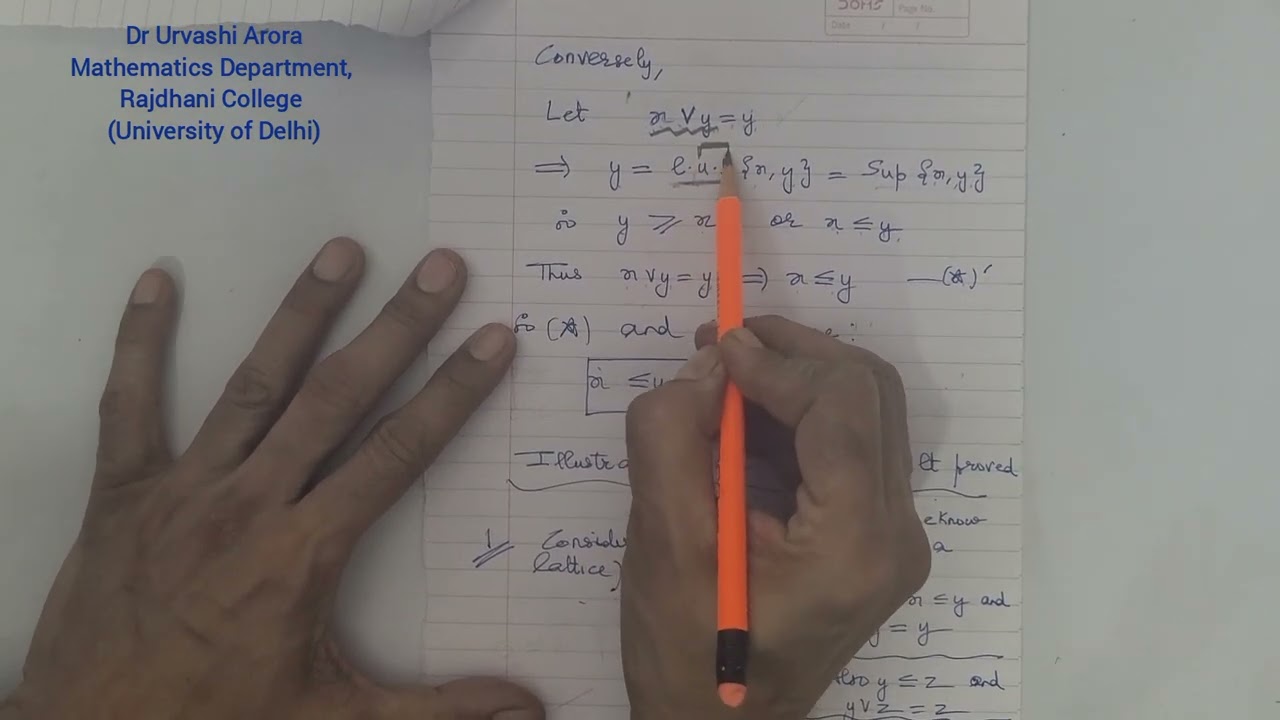 Dr Urvashi Arora
Mathematics Department,
Rajdhani College
(University of Delhi)
Page No.
Date / /
Conversely,
Let x ∨ y = y
⟹ y = l.u. {x, y} = Sup {x, y}
∴ y ≥ x or x ≤ y
Thus x ∨ y = y ⟹ x ≤ y —(*)'
∴ (*) and
x ≤ y
lt proved
1 Conside
lattice)
a
x ≤ y and
y = y
Also y ≤ z and
y ∨ z = z